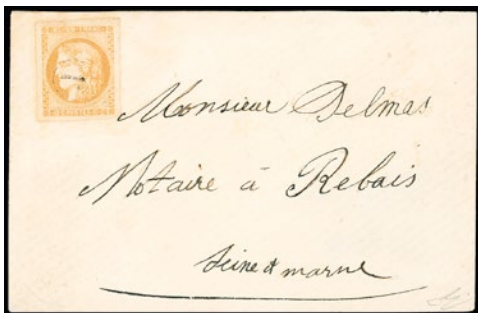 Monsieur Delmas
Notaire à Rebais
Seine et marne